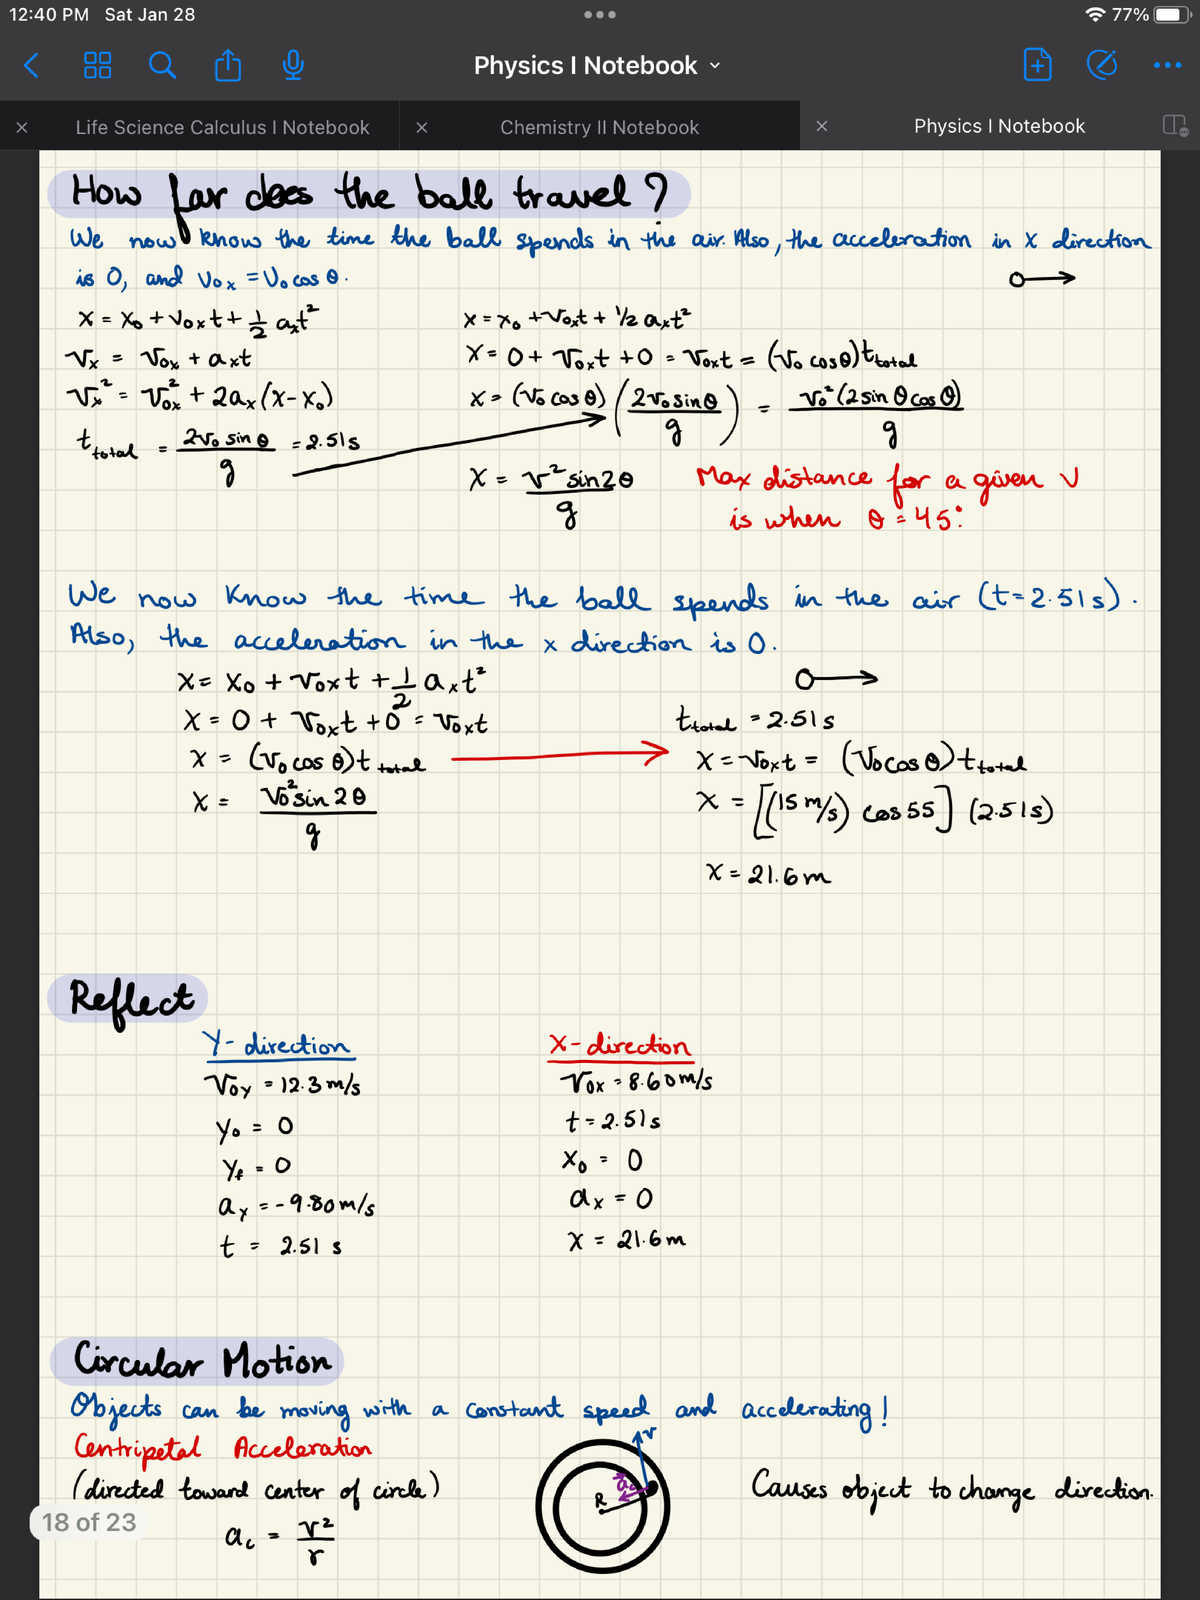 12:40 PM Sat Jan 28
77%
Physics I Notebook
Life Science Calculus I Notebook
Chemistry II Notebook
Physics I Notebook
How far does the ball travel?
We now know the time the ball spends in the air. Also, the acceleration in x direction
is 0, and v₀ₓ = v₀ cos θ.
x = x₀ + v₀ₓt + 1/2 aₓt²
vₓ = v₀ₓ + aₓt
vₓ² = v₀ₓ² + 2aₓ(x-x₀)
t total = 2v₀ sin θ / g = 2.51s
x = x₀ + v₀ₓt + 1/2 aₓt²
x = 0 + v₀ₓt + 0 = v₀ₓt = (v₀ cos θ) t total
x = (v₀ cos θ) (2v₀ sin θ / g) = v₀² (2 sin θ cos θ) / g
x = v² sin 2θ / g
Max distance for a given v
is when θ = 45°.
We now know the time the ball spends in the air (t=2.51s).
Also, the acceleration in the x direction is 0.
x = x₀ + v₀ₓt + 1/2 aₓt²
x = 0 + v₀ₓt + 0 = v₀ₓt
x = (v₀ cos θ) t total
x = v₀² sin 2θ / g
t total = 2.51s
x = v₀ₓt = (v₀ cos θ) t total
x = [(15 m/s) cos 55] (2.51s)
x = 21.6m
Reflect
Y-direction
v₀y = 12.3 m/s
y₀ = 0
yf = 0
ay = -9.80 m/s
t = 2.51 s
X-direction
v₀ₓ = 8.60 m/s
t = 2.51s
x₀ = 0
aₓ = 0
x = 21.6m
Circular Motion
Objects can be moving with a constant speed and accelerating!
Centripetal Acceleration
(directed toward center of circle)
ac = v² / r
v
a
R
Causes object to change direction.
18 of 23